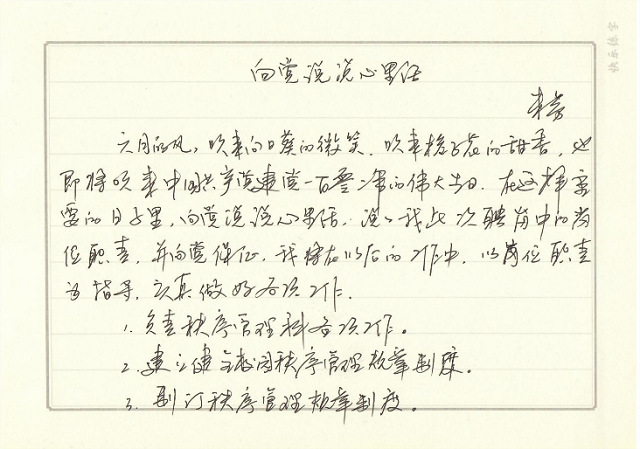 向党说说心里话
六月的风，吹来向日葵的微笑，吹来栀子花的甜香，也
即将吹来中国共产党建党一百零 的伟大生日。在这样重
要的日子里，向党说说心里话，说说我此次聘岗中的岗
位职责，并向党保证，我将在以后的工作中，以岗位职责
为指导，认真做好各项工作。
1. 负责秩序管理科各项工作。
2. 建立健全校园秩序管理规章制度。
3. 制订秩序管理规章制度。
快乐练字